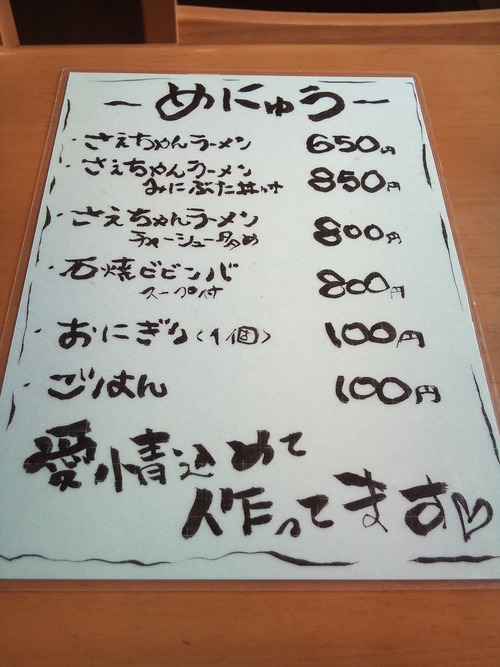 ～めにゅう～
・さえちゃんラーメン 650円
・さえちゃんラーメン 850円
みにぶた丼付
・さえちゃんラーメン 800円
チャーシュー多め
・石焼ビビンバ 800円
スープ付
・おにぎり(1個) 100円
・ごはん 100円
愛情込めて
作ってます♡